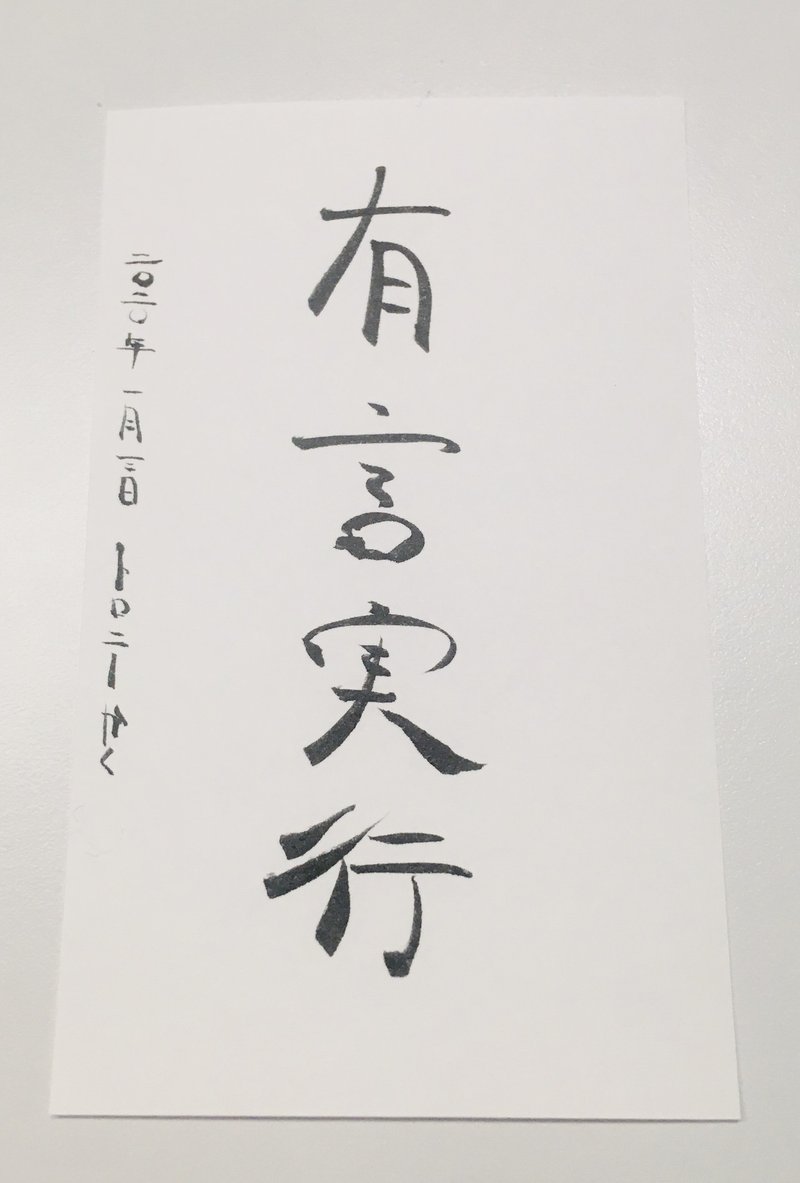 有言実行
二〇二〇年 一月三日 トロニー かく